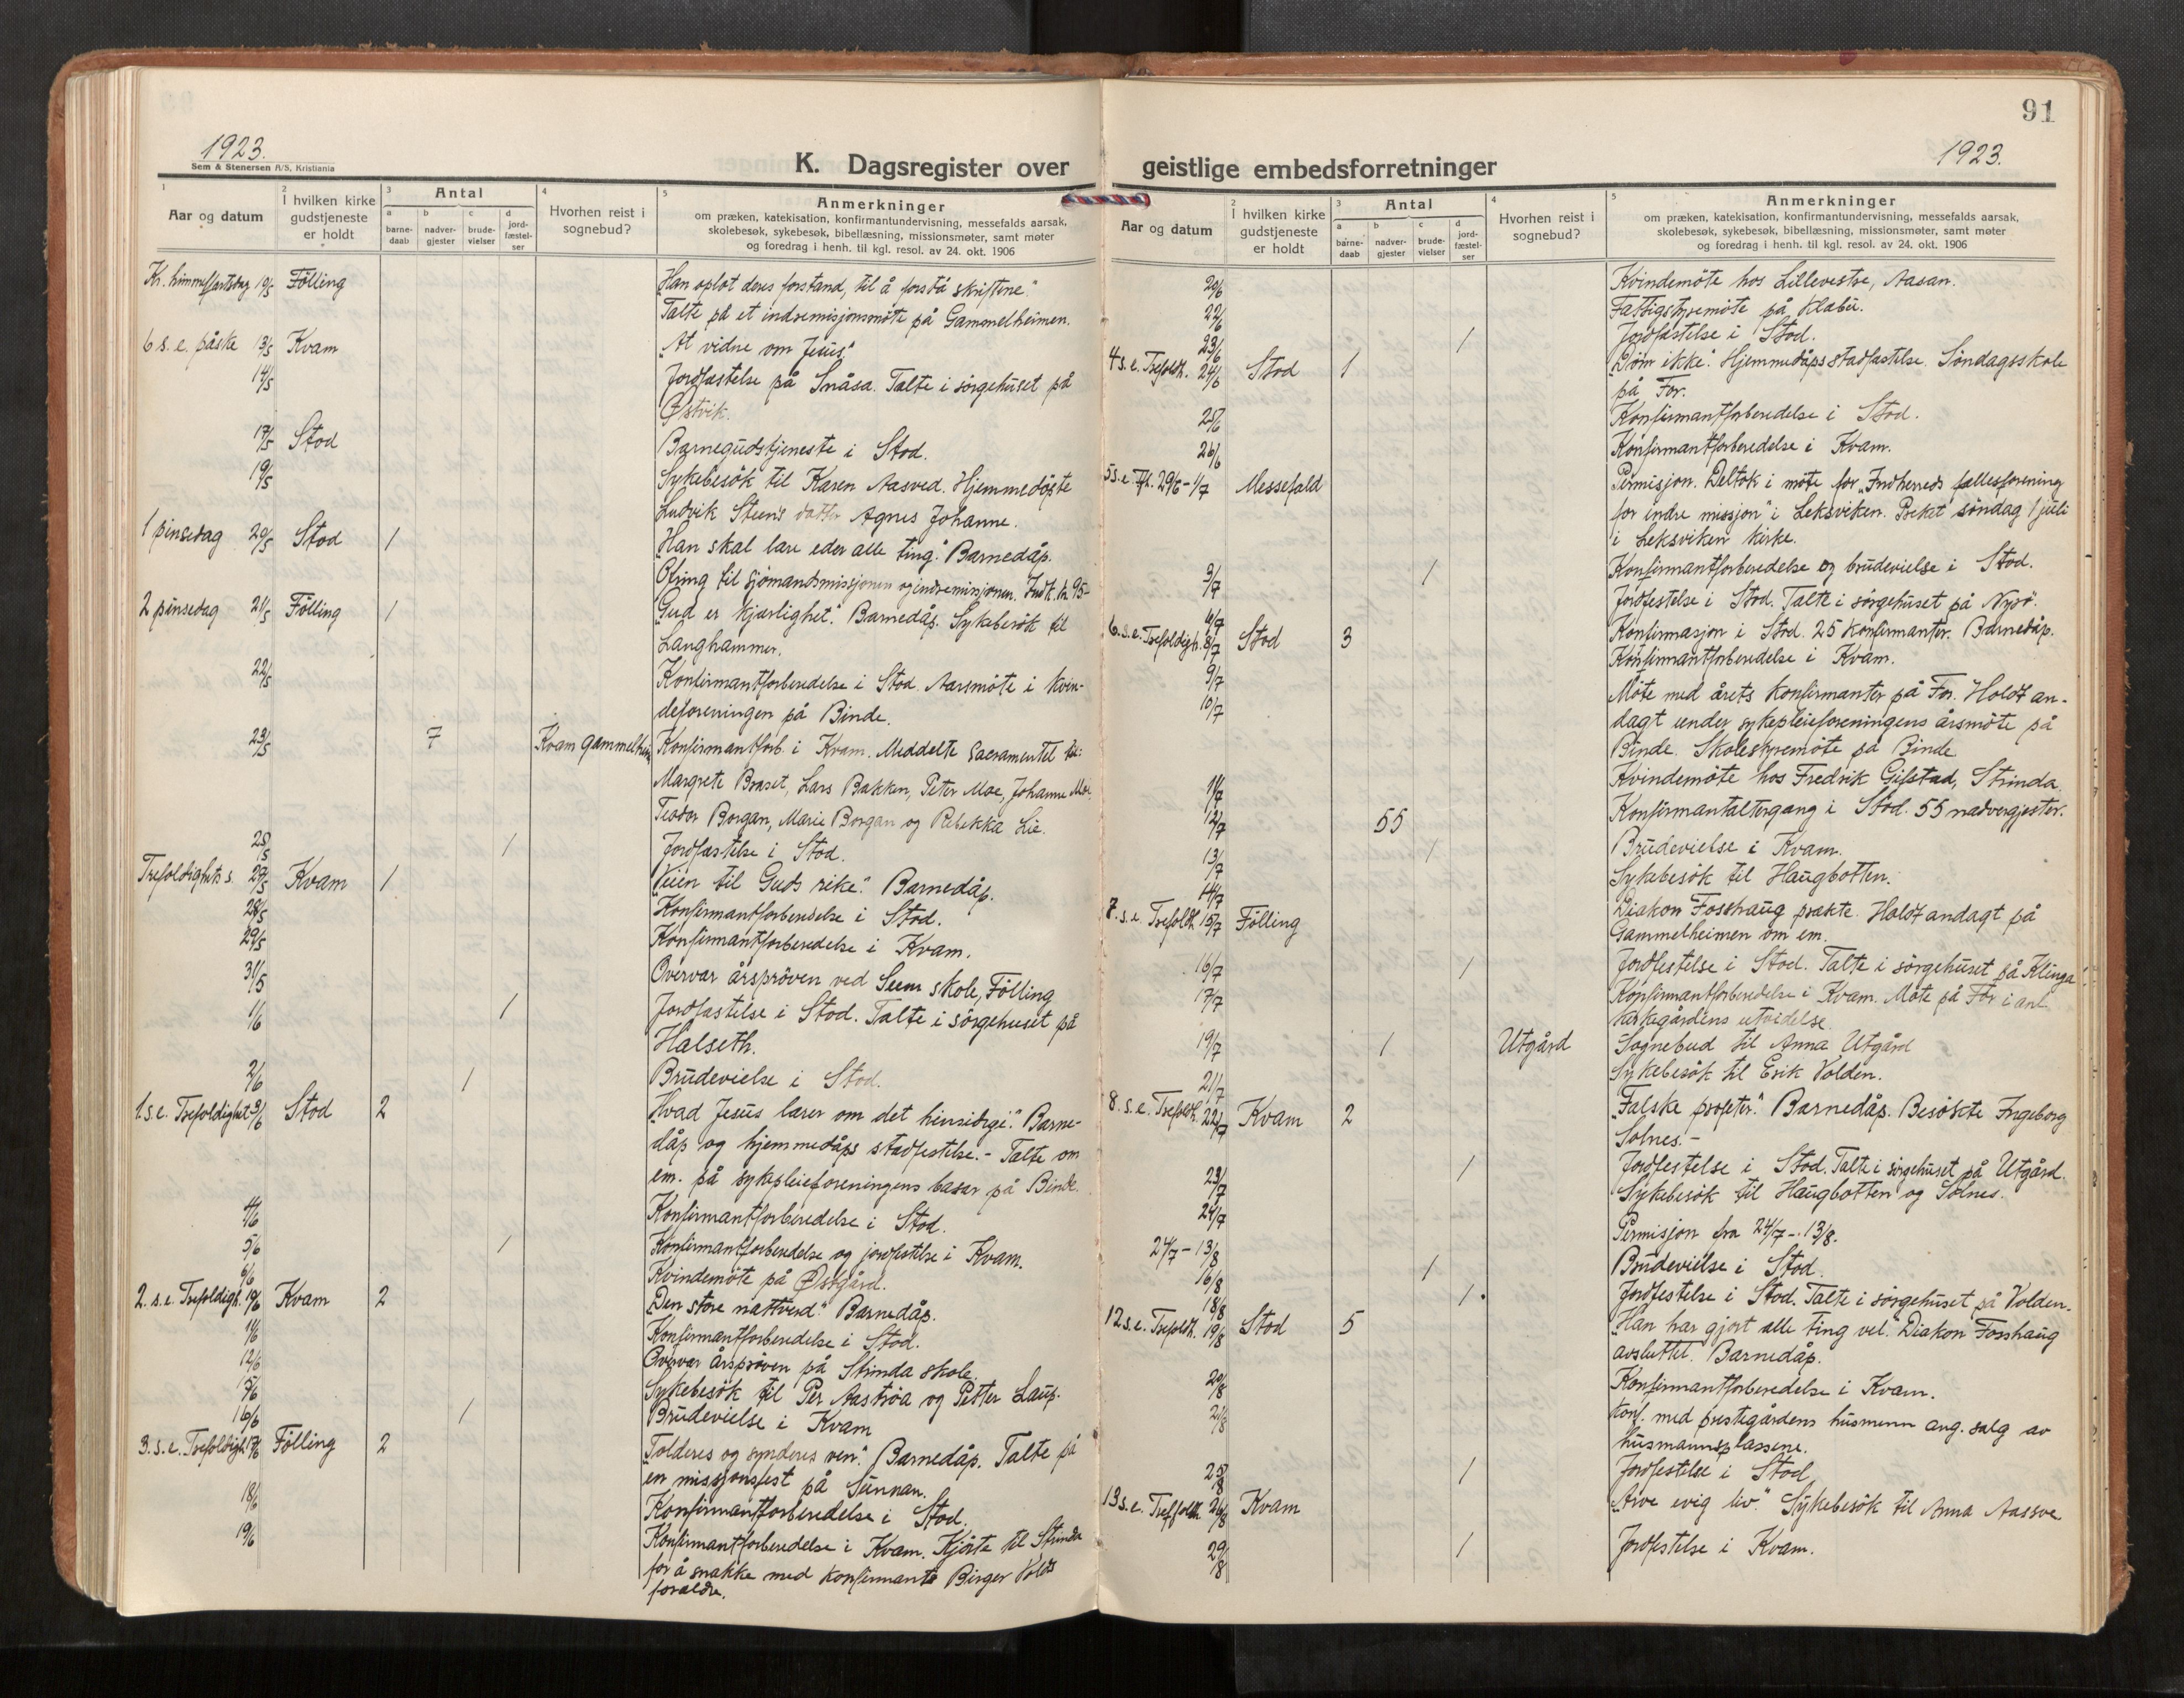 1923.
Sem & Stenersen A/S, Kristiania
K. Dagsregister over
1 Aar og datum
2 I hvilken kirke gudstjeneste er holdt
3 Antal
a barne-daab
b nadver-gjester
c brude-vielser
d jord-fæstel-ser
4 Hvorhen reist i sognebud?
5 Anmerkninger
om præken, katekisation, konfirmantundervisning, messefalds aarsak,
skolebesøk, sykebesøk, bibellæsning, missionsmøter, samt møter
og foredrag i henh. til kgl. resol. av 24. okt. 1906
Kr. himmelfartsdag 10/5 Fölling "Han oplot deres forstand, til å forstå skriftene."
Talte på et indremisjonsmöte på Gammelheimen.
6 s. e. påske 13/5 Kvam "At vidne om Jesus."
14/5 Jordfæstelse på Snåsa. Talte i sörgehuset på
Østvik.
17/5 Stod Barnegudstjeneste i Stod.
19/5 Sykebesök til Karen Aasved. Hjemmedöpte
Ludvik Steens datter Agnes Johanne.
1 pinsedag 20/5 Stod 1 "Han skal lære eder alle ting." Barnedåp.
Ofring til sjömandsmissjonen og indremisjonen. Indk. kr 95-
2 pinsedag 21/5 Fölling 1 "Gud er kjærlighet." Barnedåp. Sykebesök til
Langhammer.
22/5 Konfirmantforberedelse i Stod. Aarsmöte i kvin-
deforeningen på Binde.
23/5 7 Kvam gammelheim Konfirmantforb. i Kvam. Meddelte Sacramentet til:
Margrete Braset, Lars Bakken, Peter Moe, Johanne Moe,
Teodor Borgan, Marie Borgan og Rebekka Lie.
25/5 1 Jordfæstelse i Stod.
Trefoldighets s. 27/5 Kvam 1 "Veien til Guds rike." Barnedåp.
28/5 Konfirmantforberedelse i Stod.
29/5 Konfirmantforberedelse i Kvam.
31/5 Overvar årspröven ved Seem skole, Fölling
1/6 1 Jordfæstelse i Stod. Talte i sörgehuset på
Halseth.
2/6 1 Brudevielse i Stod.
1 s.e. Trefoldighet 3/6 Stod 2 "Hvad Jesus lærer om det hinsidige." Barne-
dåp og hjemmedåps stadfestelse. - Talte om
em. på sykepleieforeningens basar på Binde.
4/6 Konfirmantforberedelse i Stod.
5/6 1 Konfirmantforberedelse og jordfestelse i Kvam.
6/6 Kvindemöte på Östgård.
2. s. e. Trefoldigh. 10/6 Kvam 2 "Den store nattverd." Barnedåp.
11/6 Konfirmantforberedelse i Stod.
12/6 Overvar årspröven på Strinda skole.
15/6 Sykebesök til Per Aaströa og Petter Laup.
16/6 1 Brudevielse i Kvam
3. s. e. Trefoldigh. 17/6 Fölling 2 "Tolderes og synderes ven." Barnedåp. Talte på
en missjonsfest på Sunnan.
18/6 Konfirmantforberedelse i Stod.
19/6 Konfirmantforberedelse i Kvam. Kjörte til Strinda
for å snakke med konfirmant Birger Volds
forældre.
91
1923.
geistlige embedsforretninger
1 Aar og datum
2 I hvilken kirke gudstjeneste er holdt
3 Antal
a barne-daab
b nadver-gjester
c brude-vielser
d jord-fæstel-ser
4 Hvorhen reist i sognebud?
5 Anmerkninger
om præken, katekisation, konfirmantundervisning, messefalds aarsak,
skolebesøk, sykebesøk, bibellæsning, missionsmøter, samt møter
og foredrag i henh. til kgl. resol. av 24. okt. 1906
20/6 Kvindemöte hos Lillevestre, Aasan.
22/6 Fattigstyremöte på Klabu.
23/6 1 Jordfæstelse i Stod.
4 s. e. Trefoldh. 24/6 Stod 1 "Döm ikke." Hjemmedåps stadfæstelse. Söndagsskole
på For.
25/6 Konfirmantforberedelse i Stod.
26/6 Konfirmantforberedelse i Kvam.
5 s. e. Tfh. 29/6 - 1/7 Messefald Permisjon. Deltok i möte for "Indherreds fællesforening
for indre missjon" i Leksviken. Preket söndag 1 juli
i Leksviken kirke.
3/7 1 Konfirmantforberedelse og brudevielse i Stod.
6/7 Jordfestelse i Stod. Talte i sörgehuset på Nysö.
6. s. e. Trefoldigh. 8/7 Stod 3 Konfirmasjon i Stod. 25 konfirmanter. Barnedåp.
9/7 Konfirmantforberedelse i Kvam.
10/7 Möte med årets konfirmanter på For. Holdt an-
dagt under sykepleieforeningens årsmöte på
Binde. Skolestyremöte på Binde
11/7 Kvindemöte hos Fredrik Gifstad, Strinda.
12/7 55 Konfirmantaltergang i Stod. 55 nadvergjester.
13/7 1 Brudevielse i Kvam.
14/7 Sykebesök til Haugbotten.
7. s. e. Trefoldh 15/7 Fölling Diakon Fosshaug prækte. Holdt andagt på
Gammelheimen om em.
16/7 1 Jordfestelse i Stod. Talte i sörgehuset på Klinga.
17/7 Konfirmantforberedelse i Kvam. Möte på For i anl.
kirkegårdens utvidelse.
19/7 1 Utgård Sognebud til Anna Utgård
21/7 Sykebesök til Erik Volden.
8. s. e. Trefoldh. 22/7 Kvam 2 "Falske profeter." Barnedåp. Besökte Ingeborg
Solnes. -
23/7 1 Jordfestelse i Stod. Talte i sörgehuset på Utgård.
24/7 Sykebesök til Haugbotten og Solnes.
24/7 - 13/8 Permisjon fra 24/7 - 13/8.
16/8 1 Brudevielse i Stod.
18/8 1. Jordfestelse i Stod. Talte i sörgehuset på Volden.
12 s. e. Trefoldh. 19/8 Stod 5 "Han har gjort alle ting vel." Diakon Fosshaug
avsluttet. Barnedåp.
20/8 Konfirmantforberedelse i Kvam.
21/8 Konf. med prestegårdens husmenn ang. salg av
husmannsplassene.
25/8 1 Jordfestelse i Stod
13 s. e. Treffoldh. 26/8 Kvam "Arve evig liv." Sykebesök til Anna Aassve
29/8 1 Jordfestelse i Kvam.